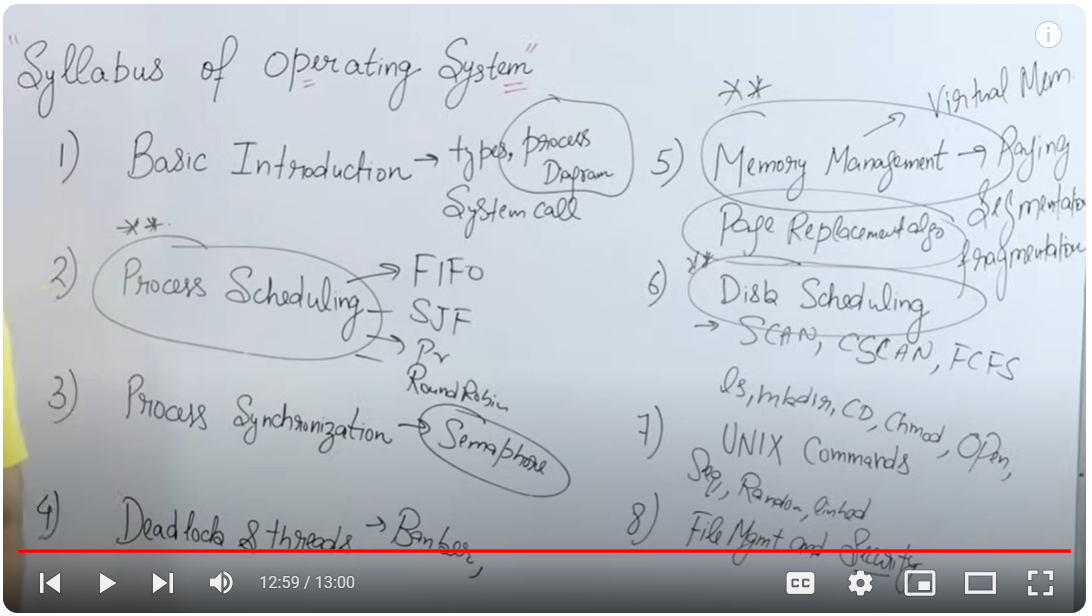 "Syllabus of Operating System"
1) Basic Introduction → types, process
Diagram
System call
**
2) Process Scheduling → FIFO
SJF
Pr
Round Robin
3) Process Synchronization → Semaphore
4) Deadlock & threads → Banker,
**
Virtual Mem.
5) Memory Management → Paging
Segmentation
fragmentation
Page Replacement algo
**
6) Disk Scheduling
→ SCAN, CSCAN, FCFS
ls, mkdir, CD, Chmod, OPen,
7) UNIX Commands
Seq, Random, linked
8) File Mgmt and Security
12:59 / 13:00
CC